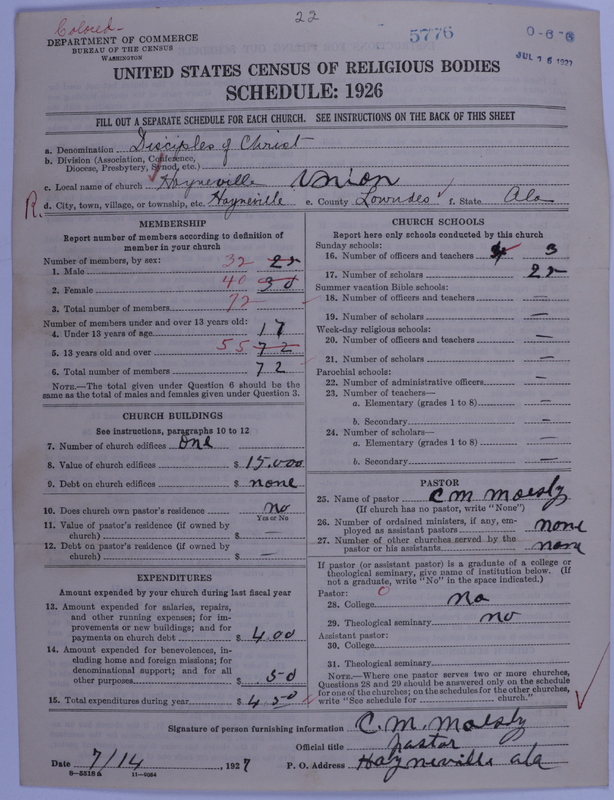 22
Colored-
5776
0-6-6
JUL 16 1927
DEPARTMENT OF COMMERCE
BUREAU OF THE CENSUS
WASHINGTON
UNITED STATES CENSUS OF RELIGIOUS BODIES
SCHEDULE: 1926
FILL OUT A SEPARATE SCHEDULE FOR EACH CHURCH. SEE INSTRUCTIONS ON THE BACK OF THIS SHEET
a. Denomination Disciples of Christ
b. Division (Association, Conference,
Diocese, Presbytery, Synod, etc.)
c. Local name of church Hayneville Union
R. d. City, town, village, or township, etc. Hayneville e. County Lowndes f. State Ala
MEMBERSHIP
Report number of members according to definition of
member in your church
Number of members, by sex:
1. Male 32 22
2. Female 40 30
3. Total number of members 72
Number of members under and over 13 years old:
4. Under 13 years of age 17
5. 13 years old and over 55 72
6. Total number of members 72
NOTE.—The total given under Question 6 should be the
same as the total of males and females given under Question 3.
CHURCH BUILDINGS
See instructions, paragraphs 10 to 12
7. Number of church edifices One
8. Value of church edifices $ 15.000
9. Debt on church edifices $ none
10. Does church own pastor's residence no
Yes or No
11. Value of pastor's residence (if owned by
church) $ —
12. Debt on pastor's residence (if owned by
church) $ —
EXPENDITURES
Amount expended by your church during last fiscal year
13. Amount expended for salaries, repairs,
and other running expenses; for im-
provements or new buildings; and for
payments on church debt $ 4.00
14. Amount expended for benevolences, in-
cluding home and foreign missions; for
denominational support; and for all
other purposes $ .50
15. Total expenditures during year $ 4.50
CHURCH SCHOOLS
Report here only schools conducted by this church
Sunday schools:
16. Number of officers and teachers 4 3
17. Number of scholars 22
Summer vacation Bible schools:
18. Number of officers and teachers —
19. Number of scholars —
Week-day religious schools:
20. Number of officers and teachers —
21. Number of scholars —
Parochial schools:
22. Number of administrative officers —
23. Number of teachers—
a. Elementary (grades 1 to 8) —
b. Secondary —
24. Number of scholars—
a. Elementary (grades 1 to 8) —
b. Secondary —
PASTOR
25. Name of pastor C M
(If church has no pastor, write "None")
26. Number of ordained ministers, if any, em-
ployed as assistant pastors none
27. Number of other churches served by the
pastor or his assistants none
If pastor (or assistant pastor) is a graduate of a college or
theological seminary, give name of institution below. (If
not a graduate, write "No" in the space indicated.)
Pastor: 0
28. College No
29. Theological seminary no
Assistant pastor:
30. College
31. Theological seminary
NOTE.—Where one pastor serves two or more churches,
Questions 28 and 29 should be answered only on the schedule
for one of the churches; on the schedules for the other churches,
write "See schedule for church."
Signature of person furnishing information C. M.
Official title pastor
Date 7/14, 1927 P. O. Address Hayneville ala
8-5518a 11-9054